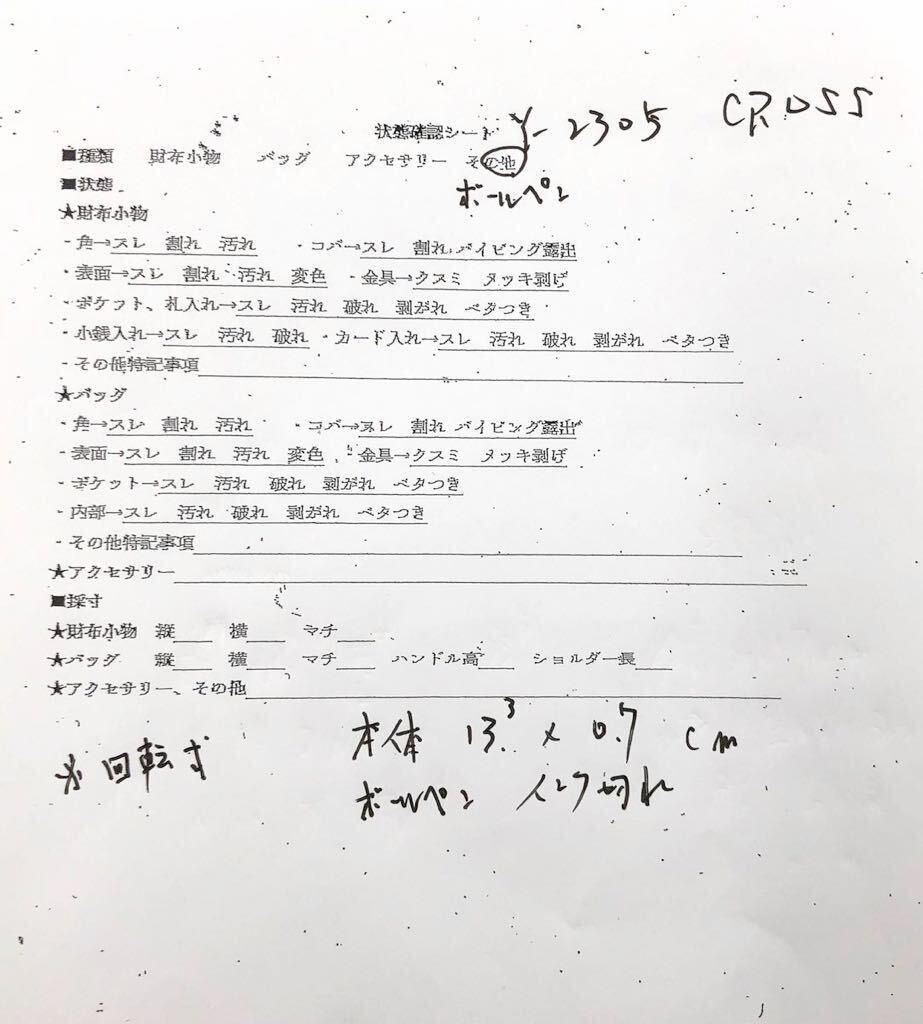 状態確認シート Y-2305 CROSS
■種類 財布小物 バッグ アクセサリー その他
ボールペン
■状態
★財布小物
・角→スレ 割れ 汚れ ・コバ→スレ 割れ パイピング露出
・表面→スレ 割れ 汚れ 変色 ・金具→クスミ メッキ剥げ
・ポケット、札入れ→スレ 汚れ 破れ 剥がれ ベタつき
・小銭入れ→スレ 汚れ 破れ ・カード入れ→スレ 汚れ 破れ 剥がれ ベタつき
・その他特記事項
★バッグ
・角→スレ 割れ 汚れ ・コバ→スレ 割れ パイピング露出
・表面→スレ 割れ 汚れ 変色 ・金具→クスミ メッキ剥げ
・ポケット→スレ 汚れ 破れ 剥がれ ベタつき
・内部→スレ 汚れ 破れ 剥がれ ベタつき
・その他特記事項
★アクセサリー
■採寸
★財布小物 縦 横 マチ
★バッグ 縦 横 マチ ハンドル高 ショルダー長
★アクセサリー、その他
本体 13.3 × 0.7 cm
※回転式
ボールペン インク切れ